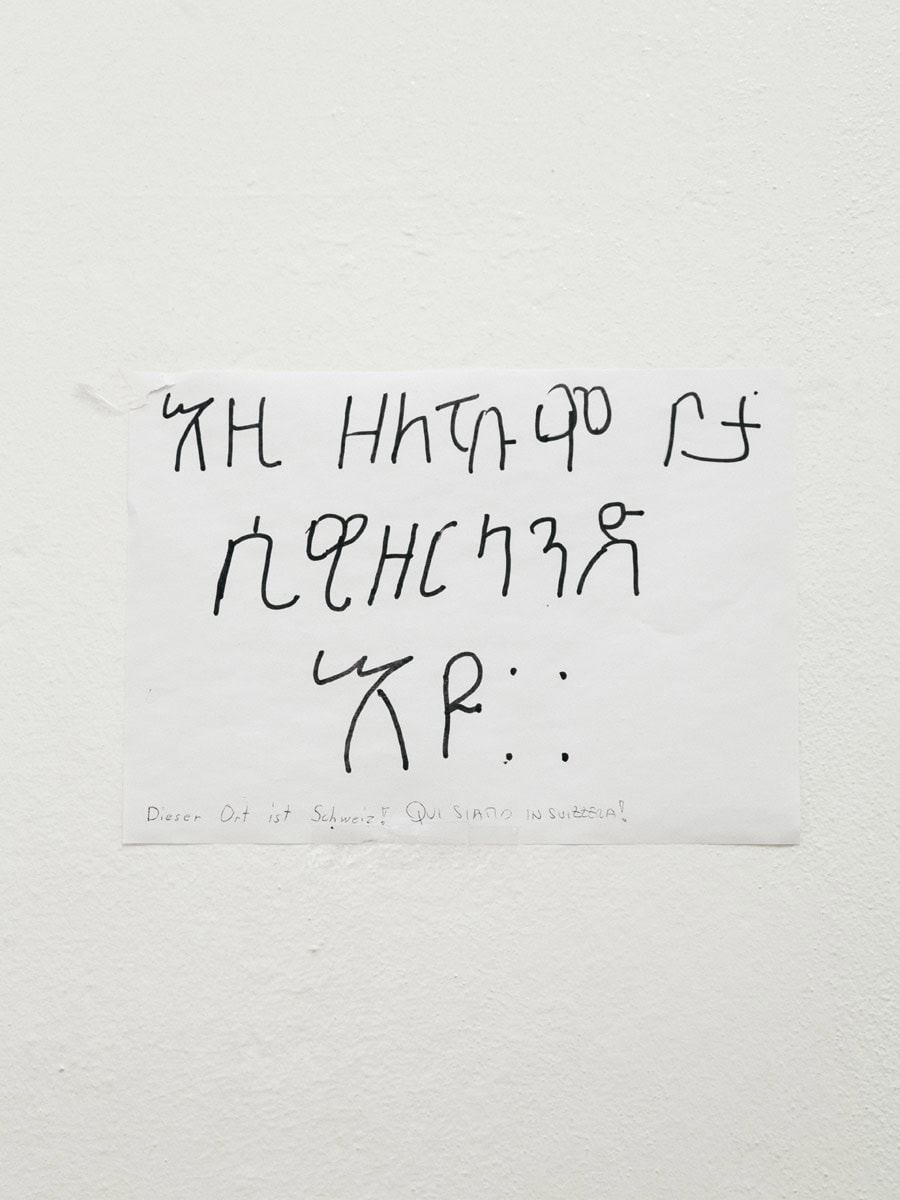 እዚ ቦታ
ሲዊዘርላንድ
እዩ፡፡
Dieser Ort ist Schweiz! QUI SIAMO IN SUIZZERA!